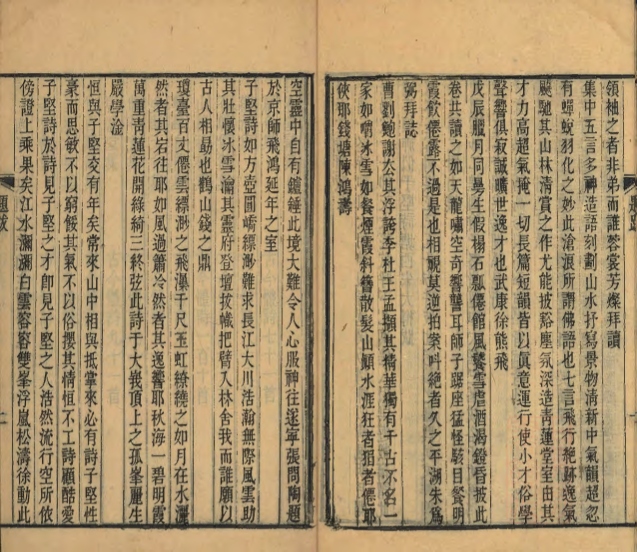 領袖之者非弟而誰蓉裳芳燦拜讀
集中五言多神造語刻劃山水抒寫景物清新中氣韻超忽
有蟬蛻羽化之妙此滄浪所謂佛語也七言飛行絕跡逸氣
飈馳其山林清賞之作尤能披豁塵氛深造青蓮堂室由其
才力高超氣掩一切長篇短韻皆以眞意運行使小才俗學
聲響俱寂誠曠世逸才也武康徐熊飛
戊辰臘月同學生假楊石瓢僊館風饕雪虐酒渴鐙昏披此
卷共讀之如天龍嘯空奇響警耳師子踞座猛怪駭目餐明
霞飲僊露不過是也相覩莫逆拍案呌絶者久之平湖朱爲
弼拜誌
曹劉鮑謝公其浮誇李杜王孟擷其精華獨有千古不名一
家如嚼冰雪如餐煙霞斜簪散髮山傾水涯狂者狷者僊耶
俠耶錢塘陳鴻壽
空靈中自有鑪錘此境大難令人心服神往遂寧張問陶題
於京師飛鴻延年之室
子堅詩如方壺圓嶠縹渺難求長江大川浩瀚無際風雲助
其壯懷冰雪瀹其靈府登壇拔幟把臂入林舍我而誰願以
古人相勗也鶴山錢之鼎
瓊臺百丈僊雲縹渺之飛瀑千尺玉虹繚繞之如月在水灑
然者其岩往耶如風過簫冷然者其逸響耶秋海一碧明霞
萬重青蓮花開綠綺三終弦此詩于大峩頂上之孤峯麗生
嚴學淦
恒與子堅交有年矣常來山中相與抵掌來必有詩子堅性
豪而思敏不以窮餒其氣不以俗攖其情恒不工詩顧酷愛
子堅詩於詩見子堅之才即見子堅之人浩然流行空所依
傍證上乘果矣江水瀰瀰白雲容容雙峯浮嵐松濤徐動此
題跋
二